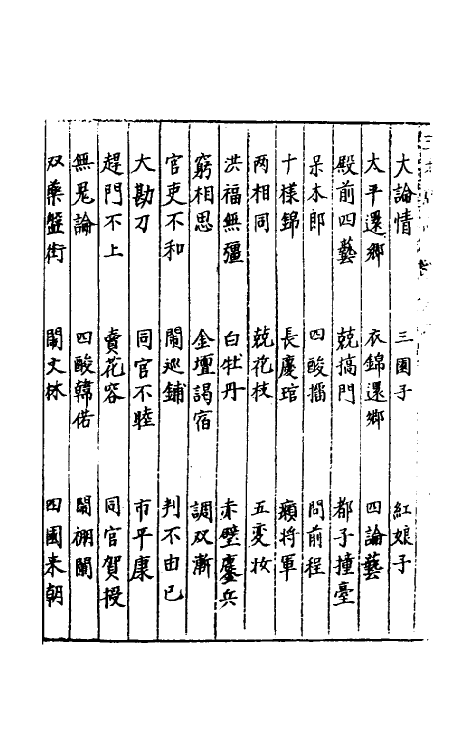 大論情 三園子 紅娘子
太平還鄉 衣錦還鄉 四論藝
殿前四藝 競搞門 都子撞臺
呆木郎 四酸擂 問前程
十樣錦 長慶琯 癩將軍
兩相同 競花枝 五変妝
洪福無疆 白牡丹 赤壁鏖兵
窮相思 金壇謁宿 調双漸
官吏不和 閙巡鋪 判不由已
大勘刀 同官不睦 市平康
趕門不上 賣花容 同官賀授
無鬼論 四酸韓偌 閙棚闌
双藥盤街 閙文林 四國來朝